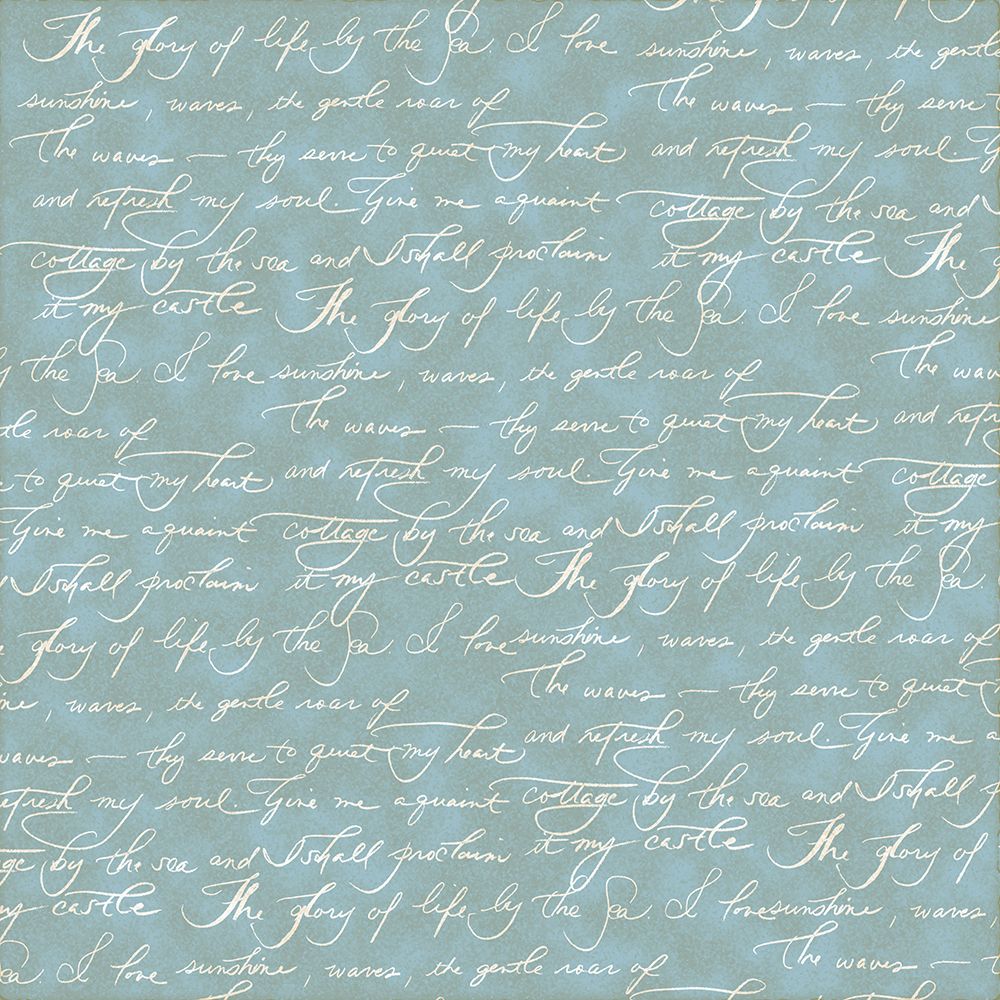 The glory of life by the Sea. I love sunshine, waves, the gentle
sunshine, waves, the gentle roar of The waves — they serve
The waves — they serve to quiet my heart and refresh my soul.
and refresh my soul. Give me a quaint cottage by the sea and
cottage by the sea and I shall proclaim it my castle The
it my castle The glory of life by the Sea. I love sunshine
the Sea. I love sunshine, waves, the gentle roar of The
roar of The waves — they serve to quiet my heart and
to quiet my heart and refresh my soul. Give me a quaint cottage
Give me a quaint cottage by the sea and I shall proclaim it my
I shall proclaim it my castle The glory of life by the Sea
glory of life by the Sea. I love sunshine, waves, the gentle roar of
waves, the gentle roar of The waves — they serve to quiet
waves — they serve to quiet my heart and refresh my soul. Give me a
my soul. Give me a quaint cottage by the sea and I shall
by the sea and I shall proclaim it my castle The glory of
castle The glory of life by the Sea. I love sunshine, waves
Sea. I love sunshine, waves, the gentle roar of The waves —